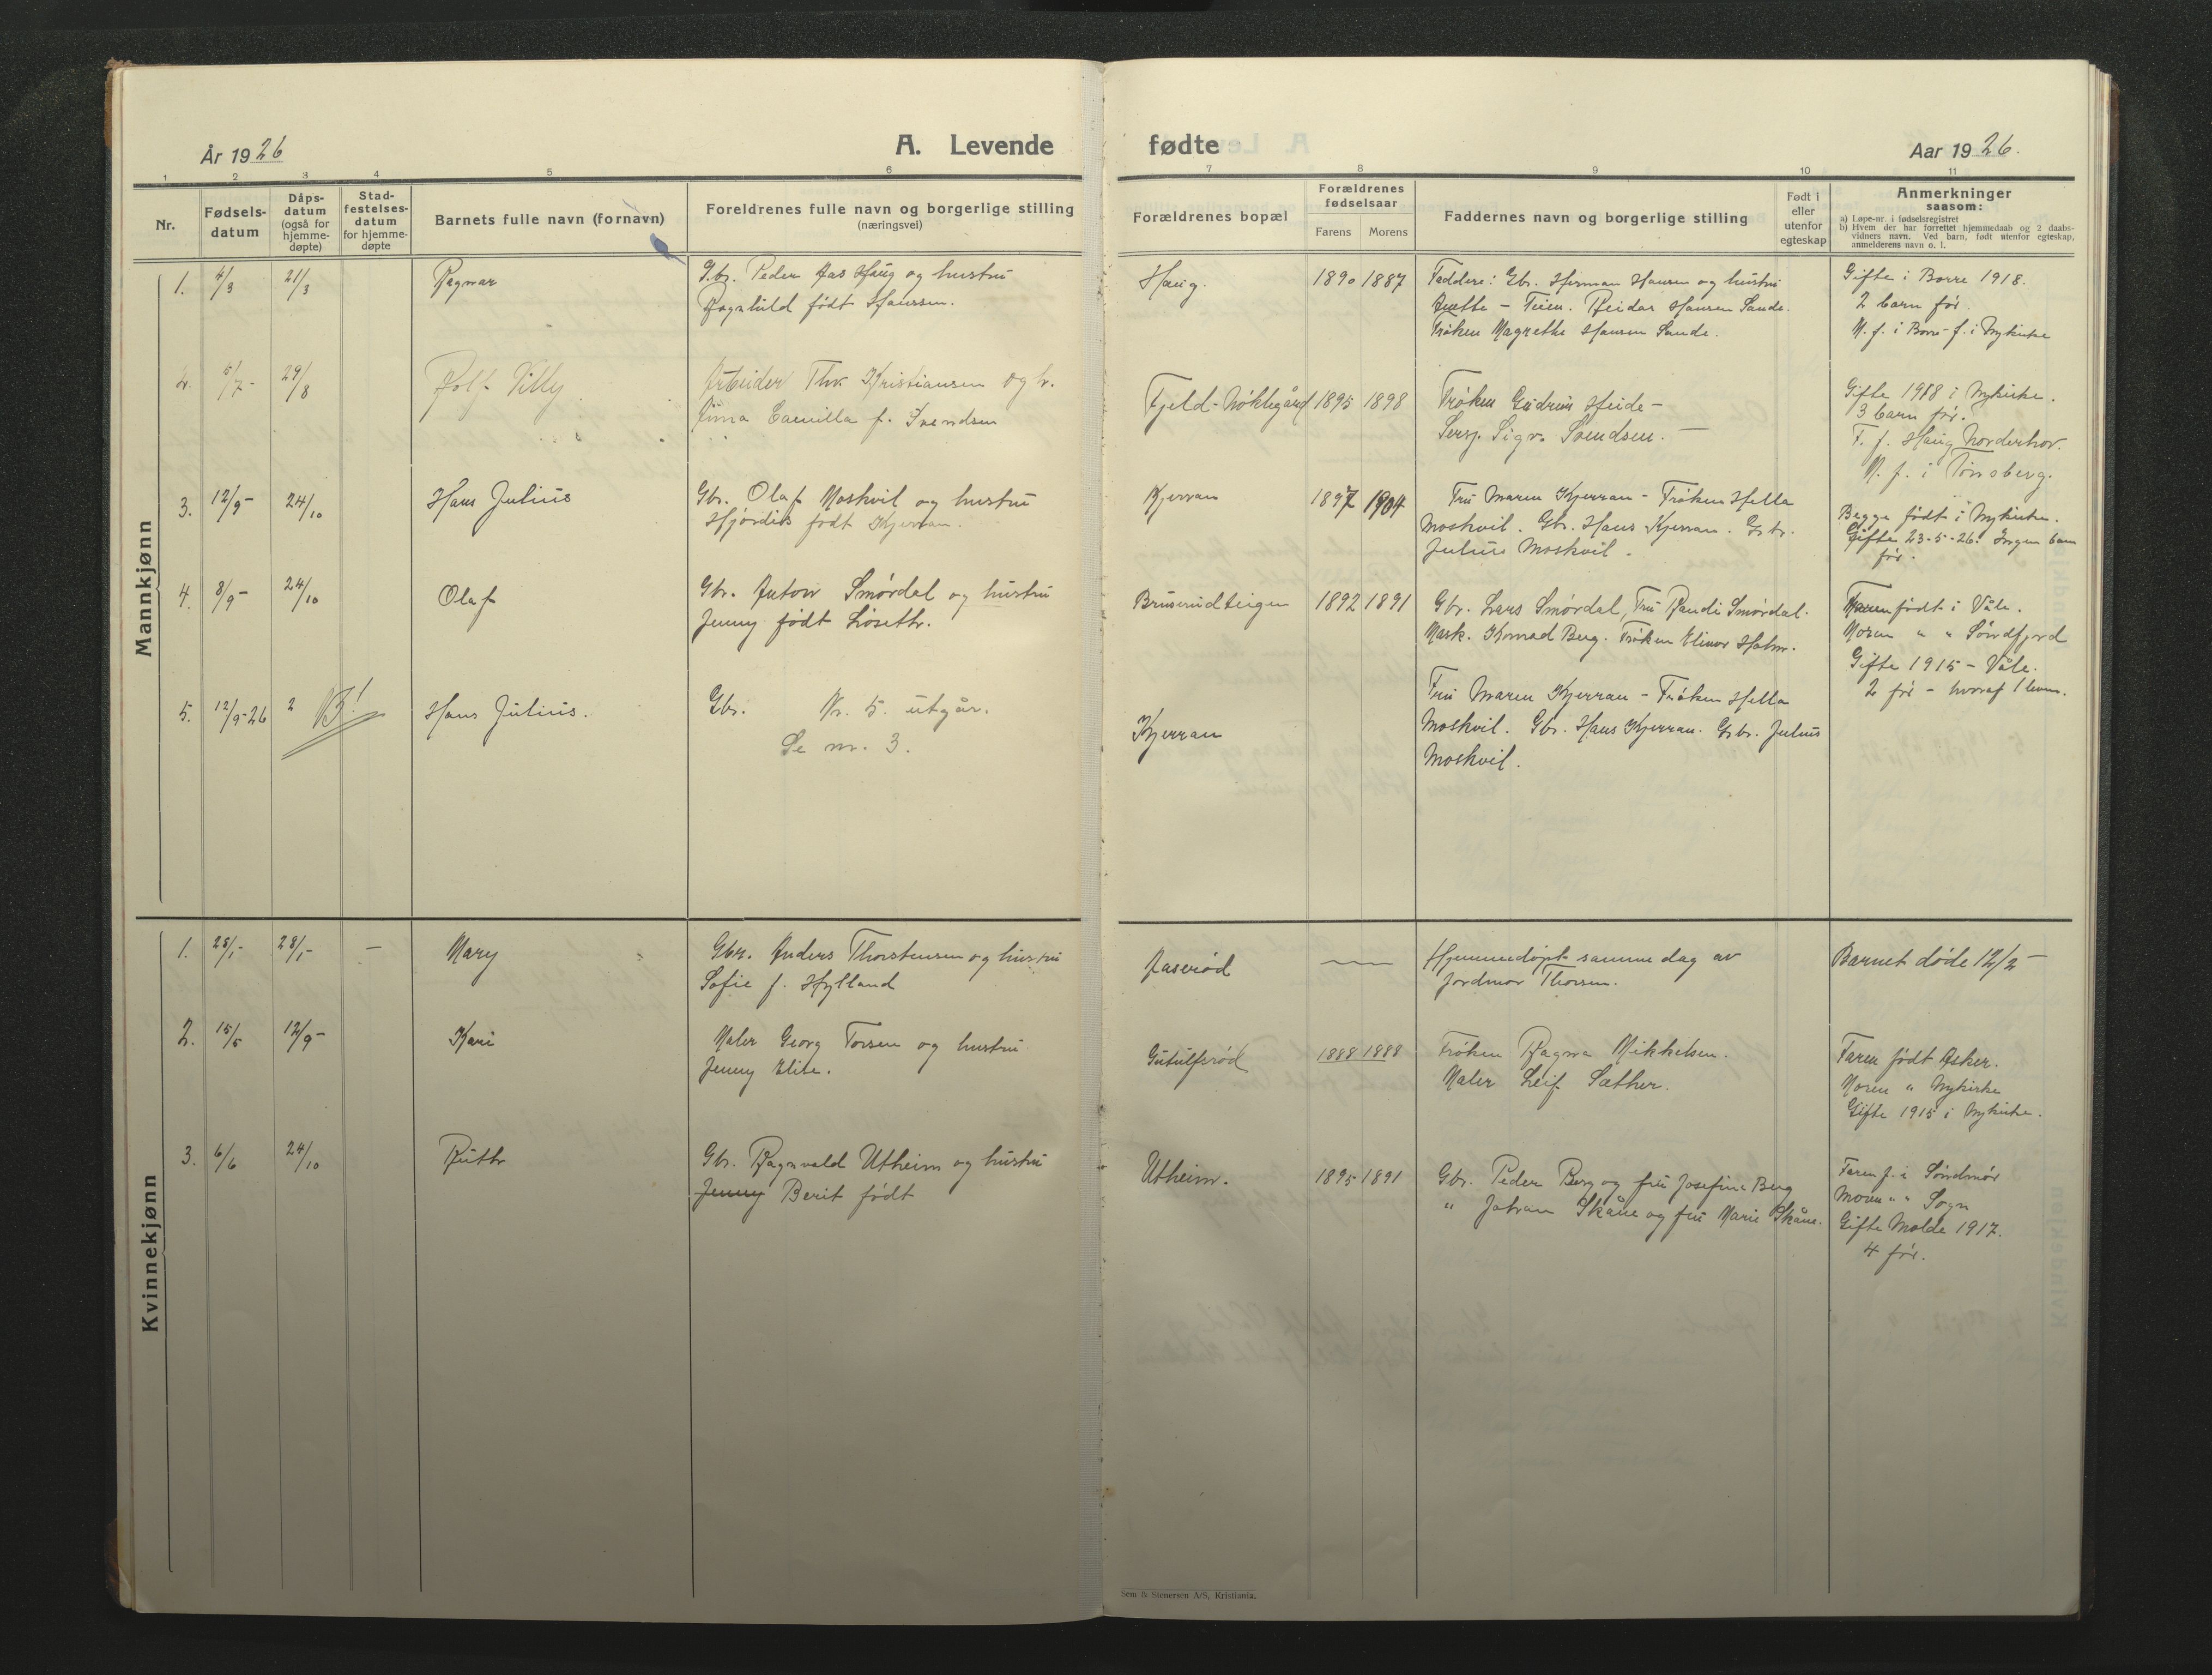 År 1926
A. Levende
fødte
Aar 1926.
1 2 3 4 5 6 7 8 9 10 11
Nr.
Fødselsdatum
Dåpsdatum (også for hjemmedøpte)
Stadfestelsesdatum for hjemmedøpte
Barnets fulle navn (fornavn)
Foreldrenes fulle navn og borgerlige stilling
(næringsvei)
Forældrenes bopæl
Forældrenes fødselsaar
Farens Morens
Faddernes navn og borgerlige stilling
Født i eller utenfor egteskap
Anmerkninger
saasom:
a) Løpe-nr. i fødselsregistret
b) Hvem der har forrettet hjemmedaab og 2 daabs-
vidners navn. Ved barn, født utenfor egteskap,
anmelderens navn o. l.
Mannkjønn
1. 4/3 21/3 Ragnar
Gbr. Peder Aas Haug og hustru
Ragnhild født Hanssen.
Haug. 1890 1887
Faddere: Gbr. Herman Hansen og hustru
Anette - Teien. Reidar Hansen Sande.
Frøken Magrethe Hansen Sande.
Gifte i Borre 1918.
2 barn før.
M. f. i Borre - f. i Nykirke
2. 5/7- 29/8 Rolf Villy.
Arbeider Thv. Kristiansen og h.
Anna Camilla f. Svendsen
Fjeld - Nøklegård 1895 1898
Frøken Gudrun Heide -
Sersj. Sigv. Svendsen. -
Gifte 1918 i Nykirke.
3 barn før.
F. f. Haug Norderhov.
M. f. i Tønsberg.
3. 12/9- 24/10 Hans Julius
Gbr. Olaf Moskvil og hustru
Hjørdis født Kjerran.
Kjerran 1897 1904
Fru Maren Kjerran - Frøken Hella
Moskvil. Gbr. Hans Kjerran. Gbr.
Julius Moskvil -
Begge født i Nykirke.
Gifte 23-5-26. Ingen barn
før.
4. 8/9- 24/10 Olaf
Gbr. Anton Smørdal og hustru
Jenny født Løseth.
Bruserudteigen 1892 1891
Gbr. Lars Smørdal, Fru Randi Smørdal.
Mask. Konrad Berg. Frøken Elinor Holm.
Faren født i Våle.
Moren " " Søndfjord
Gifte 1915 - Våle.
2 før - hvoraf 1 lever.
5. 12/9-26 2 NB! Hans Julius.
Gbr. Nr. 5. utgår.
Se nr. 3.
Kjerran
Fru Maren Kjerran - Frøken Hella
Moskvil. Gbr. Hans Kjerran. Gbr. Julius
Moskvil.
Kvinnekjønn
1. 28/1- 28/1- - Mary
Gbr. Anders Thorstensen og hustru
Sofie f. Hylland
Aaserød
Hjemmedøpt samme dag av
Jordmor Thorsen.
Barnet døde 12/2 -
2. 15/5 12/9- Kari
Maler Georg Torsen og hustru
Jenny Elise.
Gutulfsrød 1888 1888
Frøken Ragna Mikkelsen.
Maler Leif Sæther.
Faren født Asker.
Moren " Nykirke
Gifte 1915 i Nykirke.
3. 6/6 24/10 Ruth
Gbr. Ragnvald Utheim og hustru
Jenny Berit født
Utheim. 1895 1891
Gbr. Peder Berg og fru Josefine Berg
" Johan Skåne og fru Marie Skåne.
Faren f. i Søndmør
Moren " " Sogn
Gifte Molde 1917.
4 før.
Sem & Stenersen A/S, Kristiania.